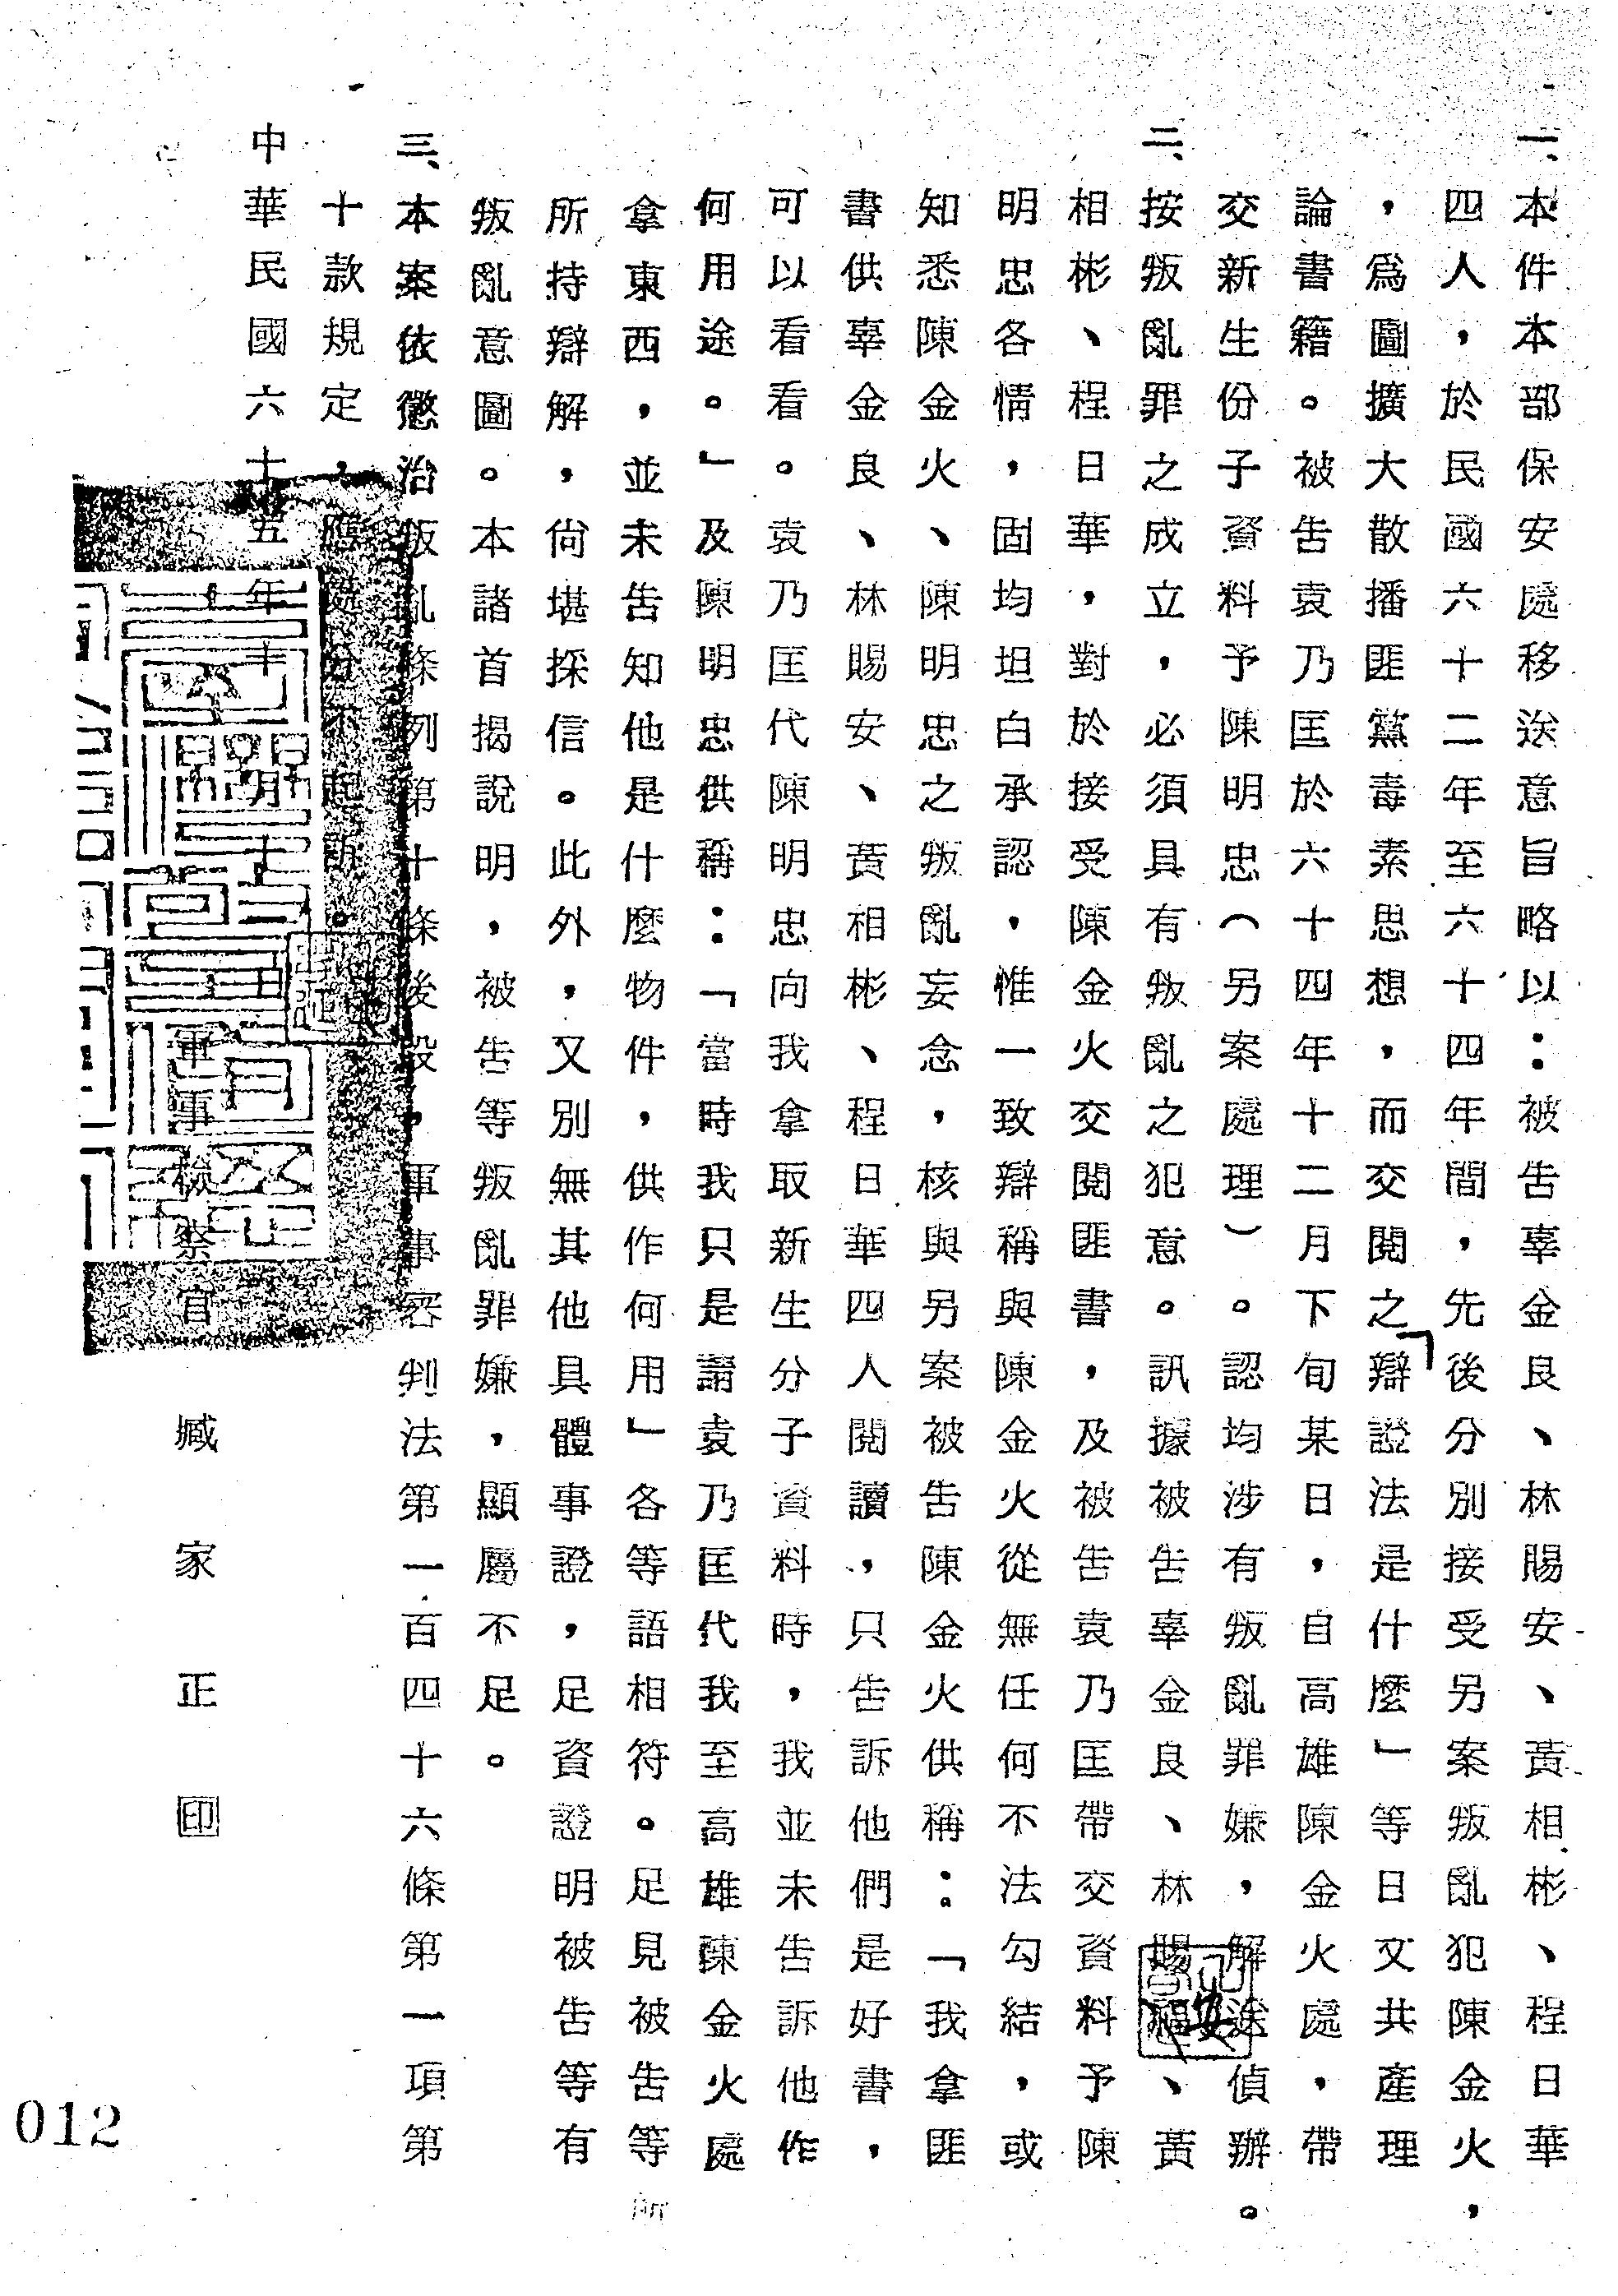 一、本件本部保安處移送意旨略以：被告辜金良、林賜安、黃相彬、程日華
四人，於民國六十二年至六十四年間，先後分別接受另案叛亂犯陳金火，
，爲圖。擴大散播匪黨毒素思想，而交閱之「辯證法是什麼」等日文共產理
論書籍。被告袁乃匡於六十四年十二月下旬某日，自高雄陳金火處，帶
交新生份子資料予陳明忠（另案處理）。認均涉有叛亂罪嫌，解送偵辦。
二、按叛亂罪之成立，必須具有叛亂之犯意。訊據被告辜金良、林賜安、黃
相彬、程日華，對於接受陳金火交閱匪書，及被告袁乃匡帶交資料予陳
明忠各情，固均坦白承認，惟一致辯稱與陳金火從無任何不法勾結，或
知悉陳金火、陳明忠之叛亂妄念，核與另案被告陳金火供稱：「我拿匪
書供辜金良、林賜安、黃相彬、程日華四人閱讀，只告訴他們是好書，
可以看看。袁乃匡代陳明忠向我拿取新生分子資料時，我並未告訴他作
何用途。」及陳明忠供稱：「當時我只是請袁乃匡代我至高雄陳金火處
拿東西，並未告知他是什麼物件，供作何用」各等語相符。足見被告等
所持辯解，尙堪採信。此外，又別無其他具體事證，足資證明被告等有
叛亂意圖。本諸首揭說明，被告等叛亂罪嫌，顯屬不足。
三、本案依懲治叛亂條例第十條後段，軍事審判法第一百四十六條第一項第
十款規定，應處分不起訴。
中華民國六十五年十月十日
軍事檢察官　臧家正印
012